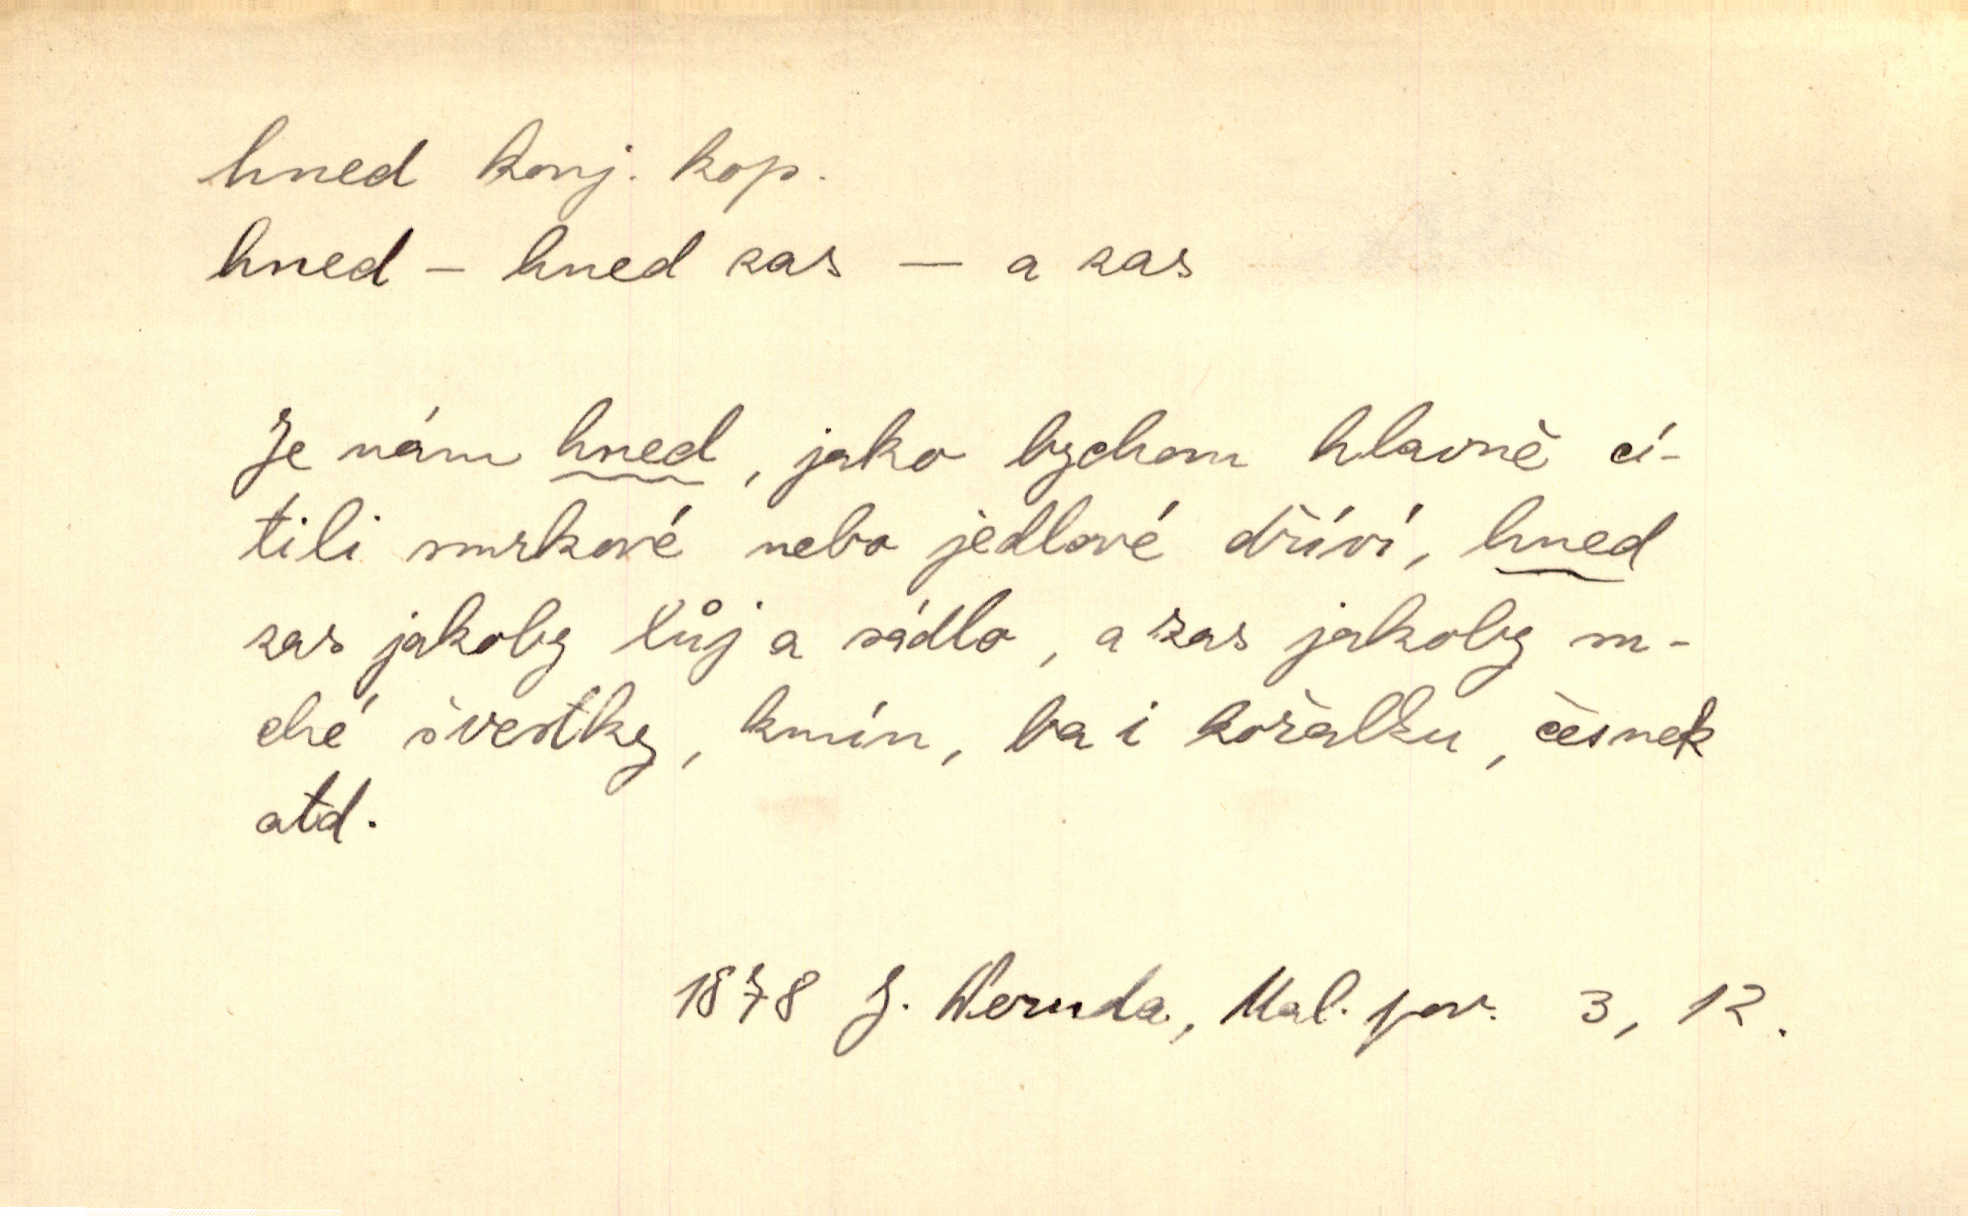 hned konj. kop.
hned – hned zas – a zas
Je nám hned, jako bychom hlavně cí-
tili smrkové nebo jedlové dříví, hned
zas jakoby lůj a sádlo, a zas jakoby su-
ché švestky, kmín, ba i kořalku, česnek
atd.
1878 J. Neruda, Mal. pov. 3, 12.